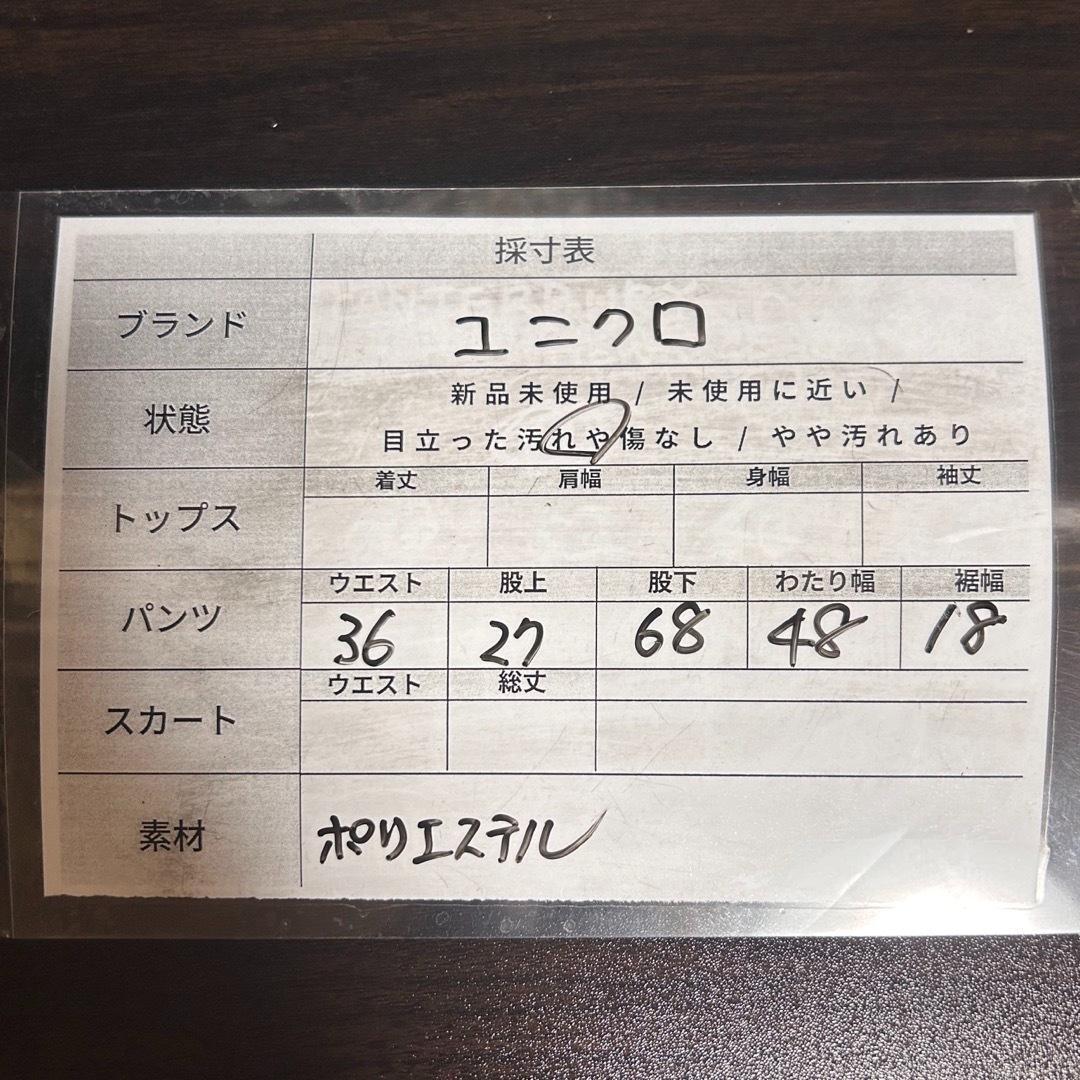 採寸表
ブランド ユニクロ
新品未使用 / 未使用に近い /
状態
目立った汚れや傷なし / やや汚れあり
着丈 肩幅 身幅 袖丈
トップス
ウエスト 股上 股下 わたり幅 裾幅
パンツ 36 27 68 48 18
ウエスト 総丈
スカート
素材 ポリエステル